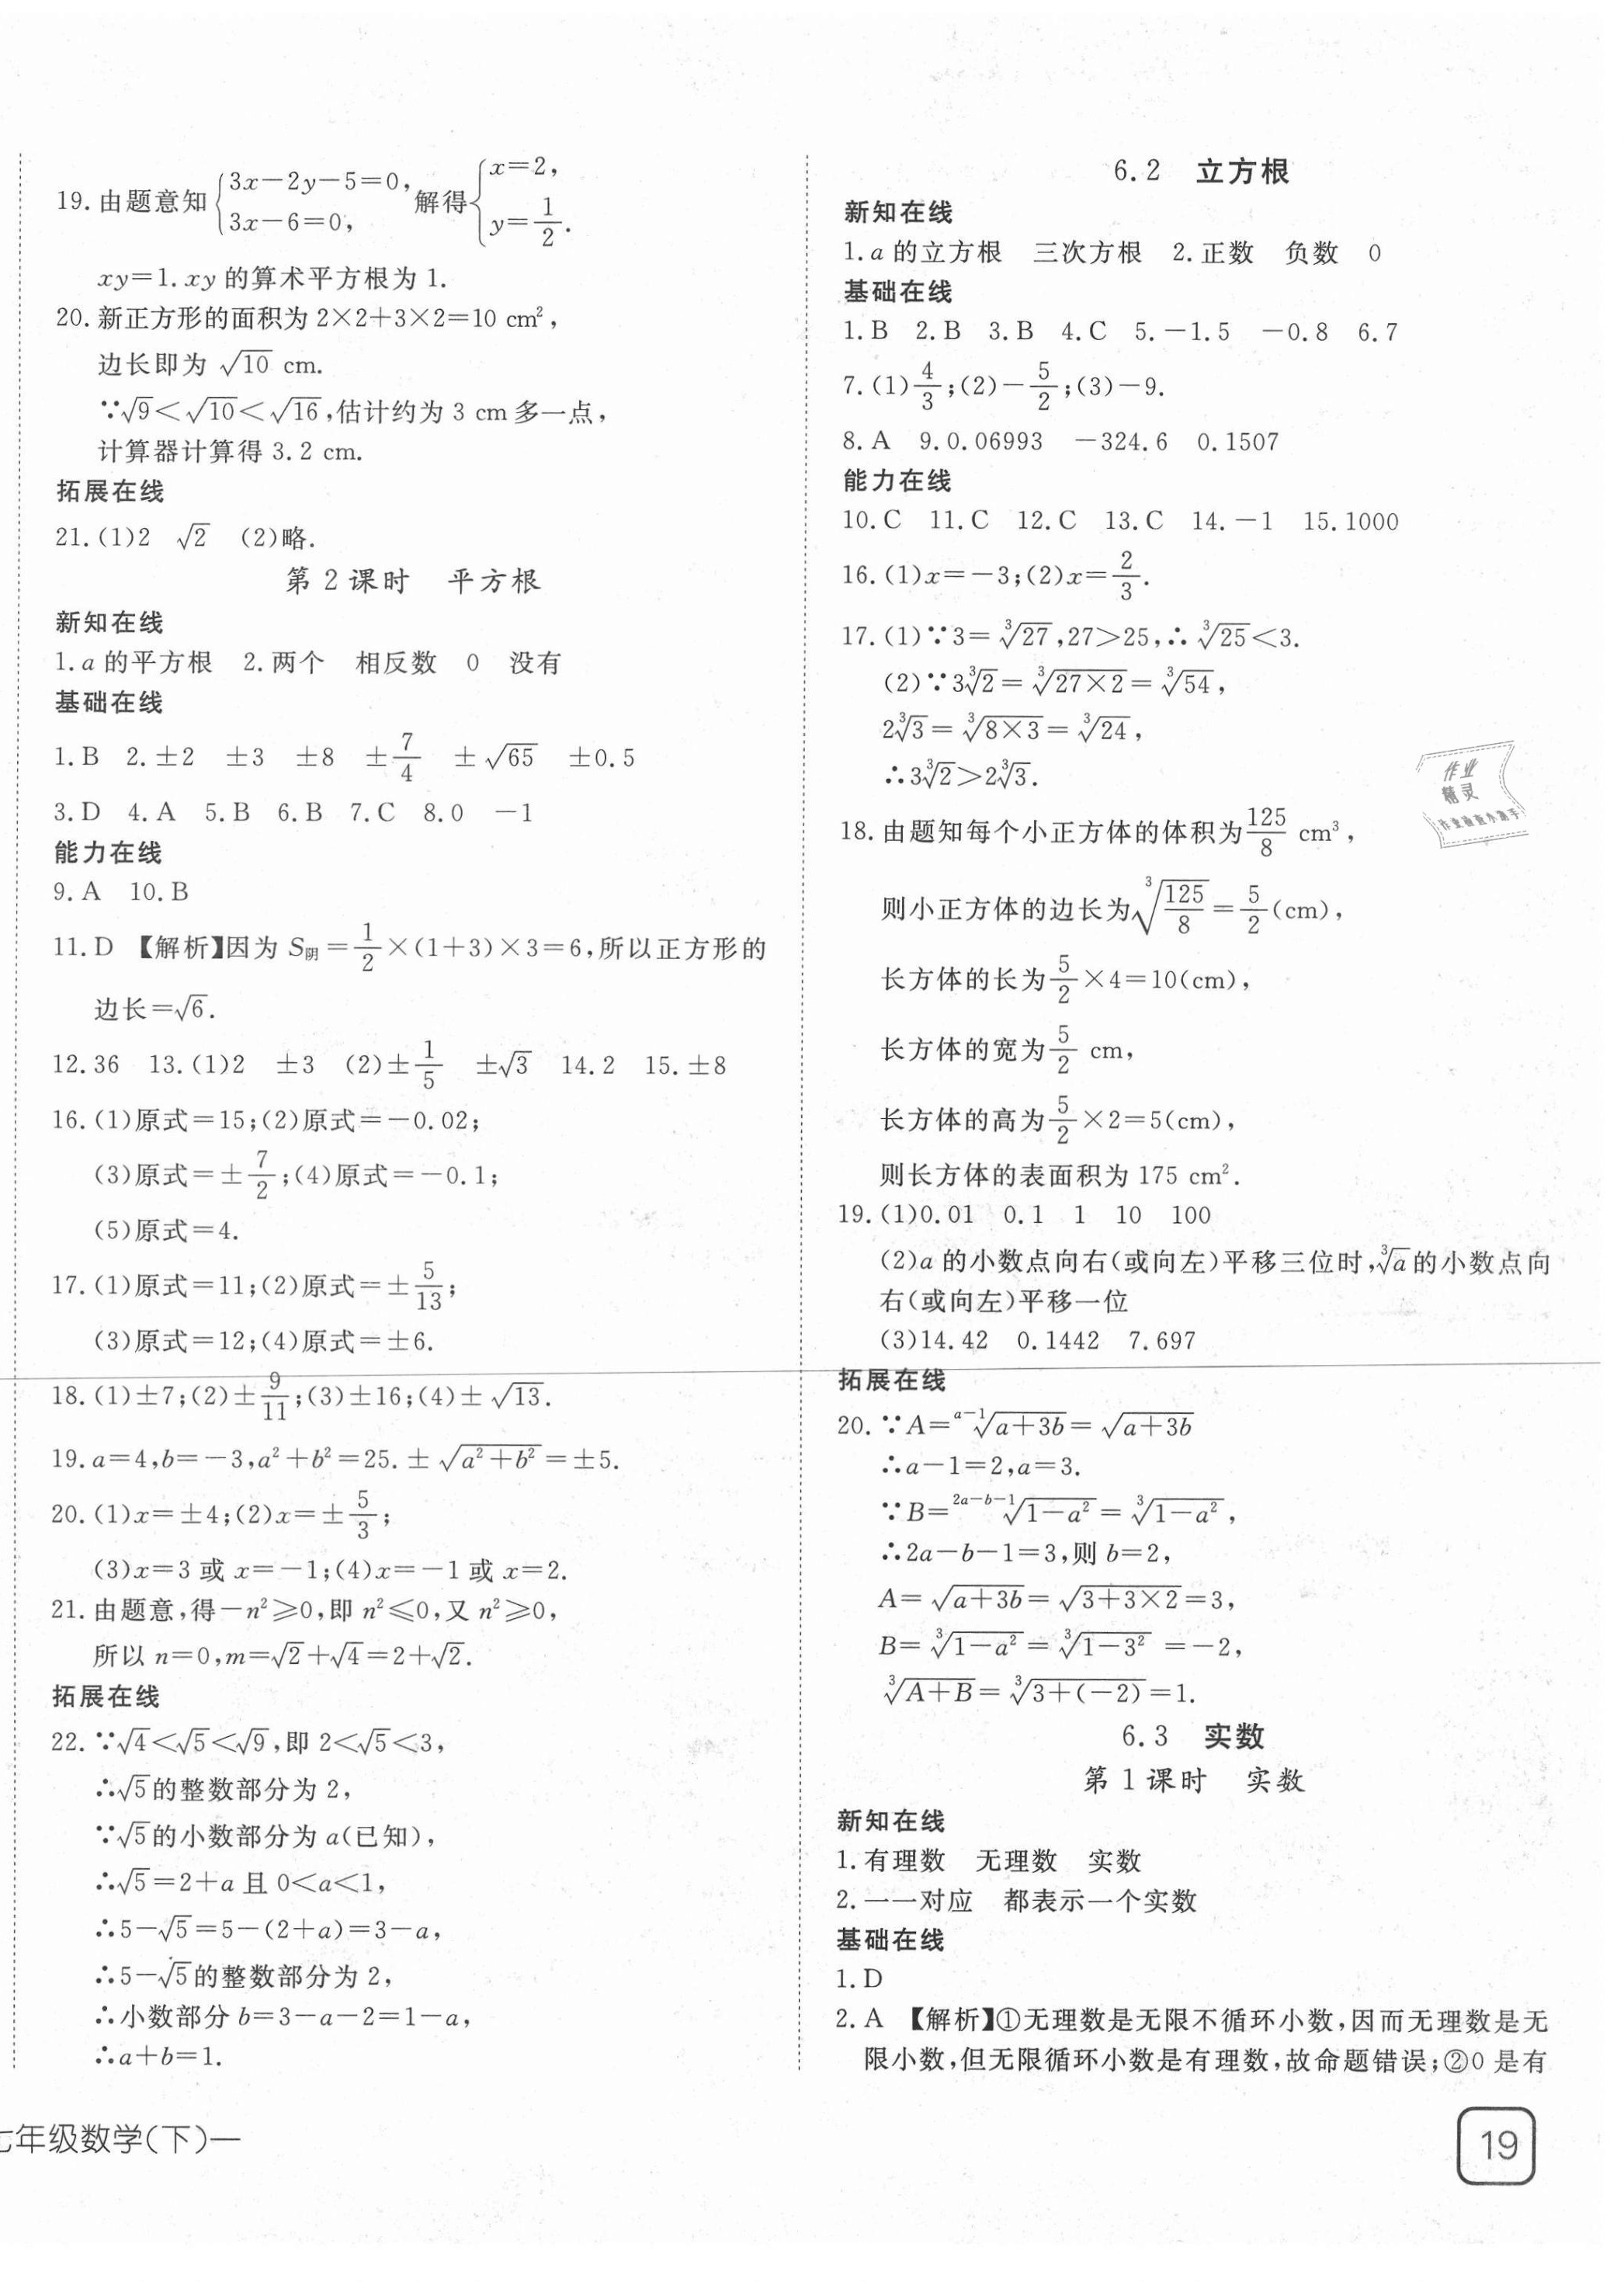 19. 由题意知{3x-2y-5=0, 3x-6=0, 解得{x=2, y=1/2.
xy=1. xy 的算术平方根为 1.
20. 新正方形的面积为 2×2+3×2=10 cm²,
边长即为 √10 cm.
∵√9<√10<√16,估计约为 3 cm 多一点,
计算器计算得 3.2 cm.
拓展在线
21. (1)2 √2 (2)略.
第 2 课时 平方根
新知在线
1. a 的平方根 2. 两个 相反数 0 没有
基础在线
1. B 2. ±2 ±3 ±8 ±7/4 ±√65 ±0.5
3. D 4. A 5. B 6. B 7. C 8. 0 -1
能力在线
9. A 10. B
11. D 【解析】因为 S阴=1/2×(1+3)×3=6,所以正方形的
边长=√6.
12. 36 13. (1)2 ±3 (2)±1/5 ±√3 14. 2 15. ±8
16. (1)原式=15;(2)原式=-0.02;
(3)原式=±7/2;(4)原式=-0.1;
(5)原式=4.
17. (1)原式=11;(2)原式=±5/13;
(3)原式=12;(4)原式=±6.
18. (1)±7;(2)±9/11;(3)±16;(4)±√13.
19. a=4,b=-3,a²+b²=25. ±√(a²+b²)=±5.
20. (1)x=±4;(2)x=±5/3;
(3)x=3 或 x=-1;(4)x=-1 或 x=2.
21. 由题意,得-n²≥0,即 n²≤0,又 n²≥0,
所以 n=0,m=√2+√4=2+√2.
拓展在线
22. ∵√4<√5<√9,即 2<√5<3,
∴√5的整数部分为 2,
∵√5的小数部分为 a(已知),
∴√5=2+a 且 0<a<1,
∴5-√5=5-(2+a)=3-a,
∴5-√5的整数部分为 2,
∴小数部分 b=3-a-2=1-a,
∴a+b=1.
6.2 立方根
新知在线
1. a 的立方根 三次方根 2. 正数 负数 0
基础在线
1. B 2. B 3. B 4. C 5. -1.5 -0.8 6. 7
7. (1)4/3;(2)-5/2;(3)-9.
8. A 9. 0.06993 -324.6 0.1507
能力在线
10. C 11. C 12. C 13. C 14. -1 15. 1000
16. (1)x=-3;(2)x=2/3.
17. (1)∵3=∛27,27>25,∴∛25<3.
(2)∵3∛2=∛(27×2)=∛54,
2∛3=∛(8×3)=∛24,
∴3∛2>2∛3.
18. 由题知每个小正方体的体积为125/8 cm³,
则小正方体的边长为∛(125/8)=5/2(cm),
长方体的长为5/2×4=10(cm),
长方体的宽为5/2 cm,
长方体的高为5/2×2=5(cm),
则长方体的表面积为 175 cm².
19. (1)0.01 0.1 1 10 100
(2)a 的小数点向右(或向左)平移三位时,∛a的小数点向
右(或向左)平移一位
(3)14.42 0.1442 7.697
拓展在线
20. ∵A=ᵃ⁻¹√(a+3b)=√(a+3b)
∴a-1=2,a=3.
∵B=²ᵃ⁻ᵇ⁻¹√(1-a²)=∛(1-a²),
∴2a-b-1=3,则 b=2,
A=√(a+3b)=√(3+3×2)=3,
B=∛(1-a²)=∛(1-3²)=-2,
∛(A+B)=∛(3+(-2))=1.
6.3 实数
第 1 课时 实数
新知在线
1. 有理数 无理数 实数
2. 一一对应 都表示一个实数
基础在线
1. D
2. A 【解析】①无理数是无限不循环小数,因而无理数是无
限小数,但无限循环小数是有理数,故命题错误;②0 是有
作业
精灵
七年级数学(下)—
19